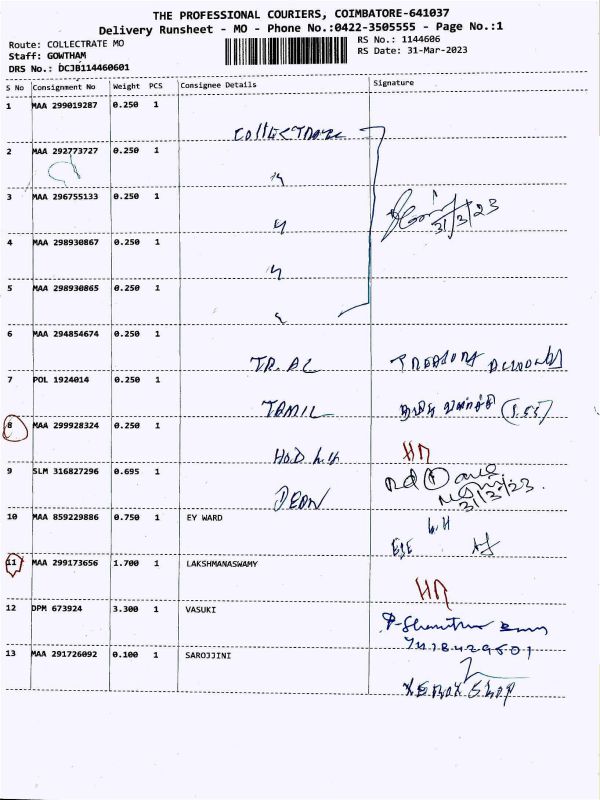 THE PROFESSIONAL COURIERS, COIMBATORE-641037
Delivery Runsheet - MO - Phone No.:0422-3505555 - Page No.:1
Route: COLLECTRATE MO
Staff: GOWTHAM
DRS No.: DCJB114460601
RS No.: 1144606
RS Date: 31-Mar-2023
S No Consignment No Weight PCS Consignee Details Signature
1 MAA 299019287 0.250 1
COLLECTRATE
2 MAA 292773727 0.250 1
3 MAA 296755133 0.250 1
31/3/23
4 MAA 298930867 0.250 1
5 MAA 298930865 0.250 1
6 MAA 294854674 0.250 1
TR. AC
7 POL 1924014 0.250 1
TAMIL
8 MAA 299928324 0.250 1
H.O.D
9 SLM 316827296 0.695 1
DEAN
31/3/23
10 MAA 859229886 0.750 1 EY WARD
11 MAA 299173656 1.700 1 LAKSHMANASWAMY
12 DPM 673924 3.300 1 VASUKI
13 MAA 291726092 0.100 1 SAROJJINI
XEROX SHOP